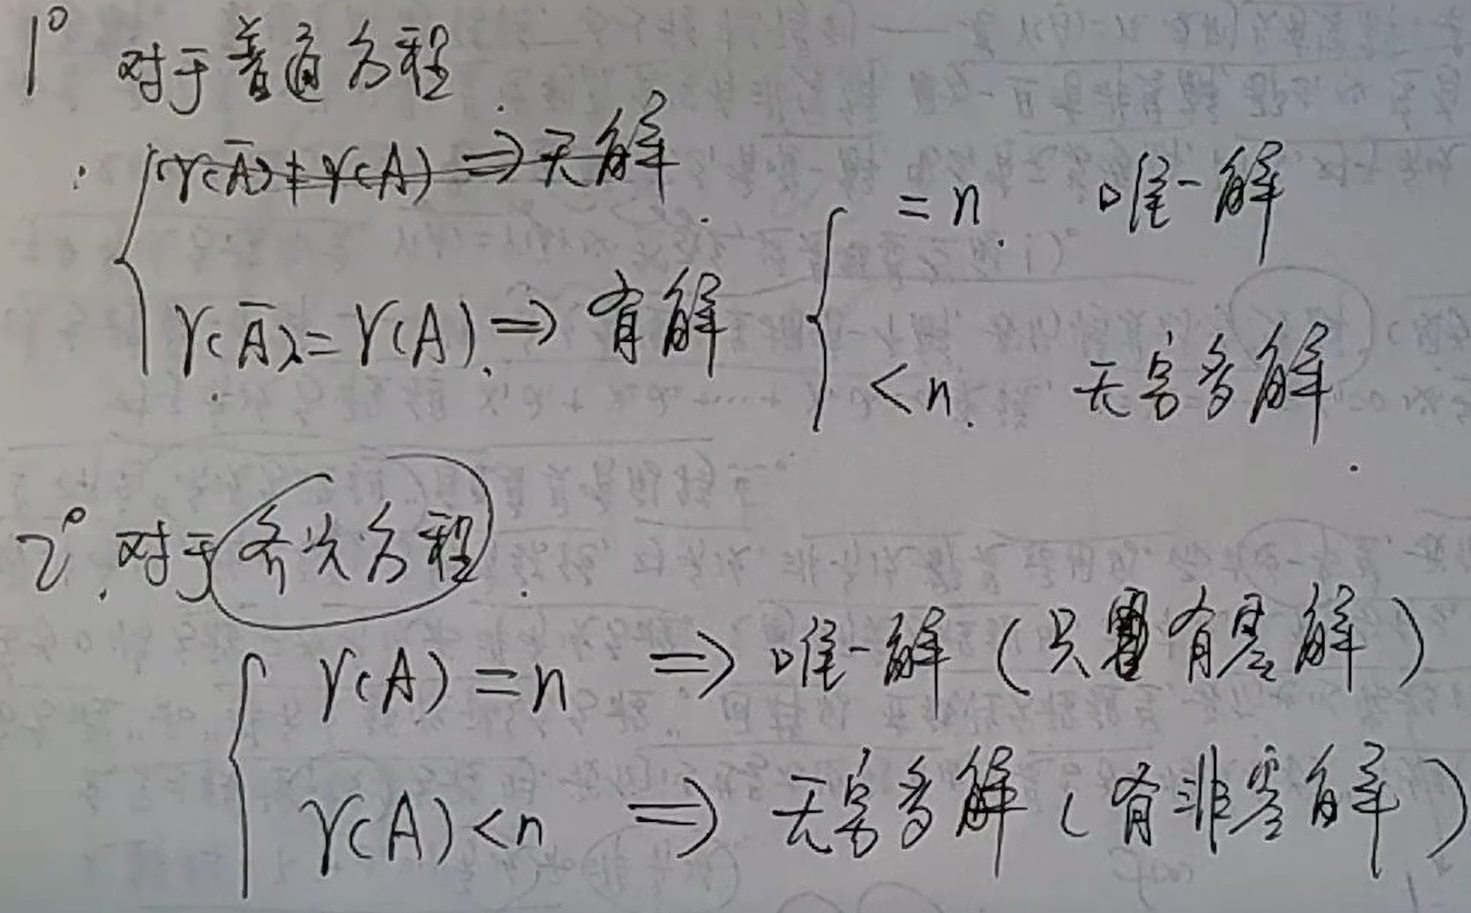 1° 对于普通方程
r(Ā)≠r(A) ⇒ 无解
= n 唯一解
r(Ā)=r(A) ⇒ 有解
< n 无穷多解
2° 对于齐次方程
r(A)=n ⇒ 唯一解（只有零解）
r(A)<n ⇒ 无穷多解（有非零解）